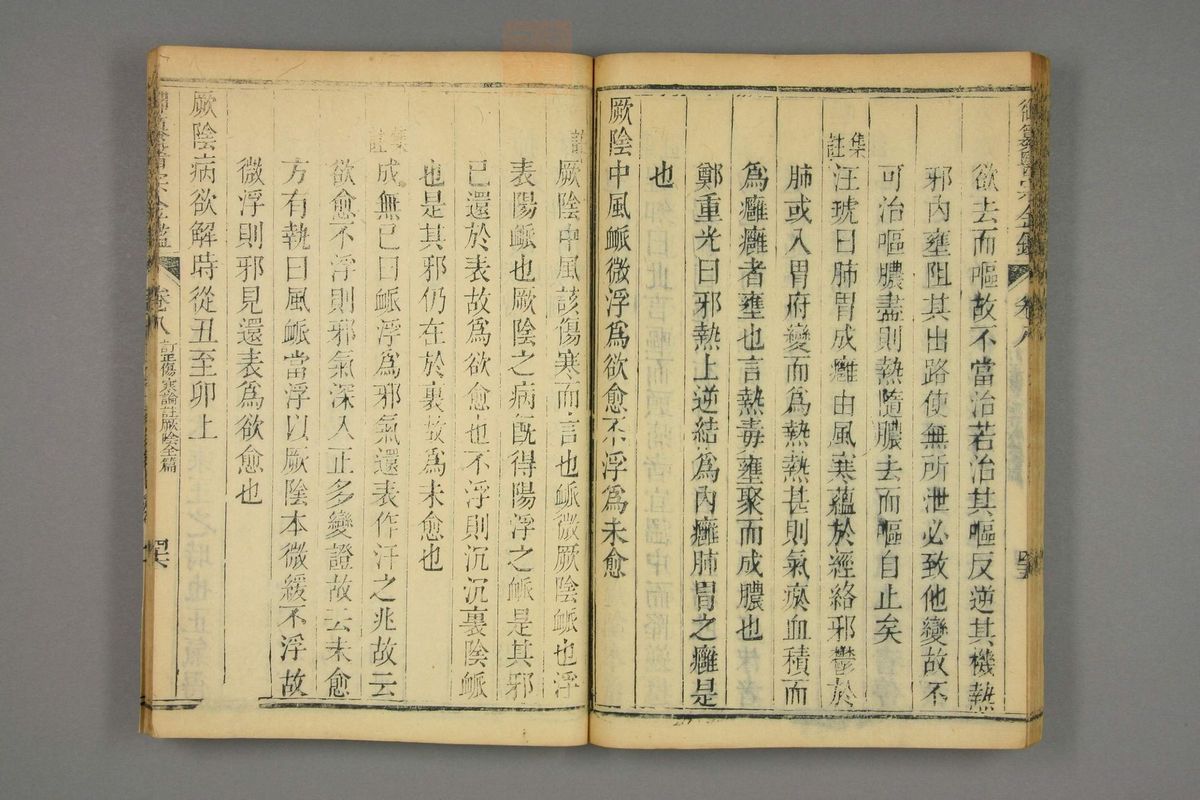 御纂醫宗金鑑 卷八 四五
欲去而嘔故不當治若治其嘔反逆其機熱
邪內壅阻其出路使無所泄必致他變故不
可治嘔膿盡則熱隨膿去而嘔自止矣
集註
汪琥曰肺胃成癰由風寒蘊於經絡邪鬱於
肺或入胃府變而為熱熱甚則氣瘀血積而
為癰癰者壅也言熱毒壅聚而成膿也
鄭重光曰邪熱上逆結為內癰肺胃之癰是
也
厥陰中風脈微浮為欲愈不浮為未愈
註
厥陰中風該傷寒而言也脈微厥陰脈也浮
表陽脈也厥陰之病既得陽浮之脈是其邪
已還於表故為欲愈也不浮則沉沉裏陰脈
也是其邪仍在於裏故為未愈也
集註
成無已曰脈浮為邪氣還表作汗之兆故云
欲愈不浮則邪氣深入正多變證故云未愈
方有執曰風脈當浮以厥陰本微緩不浮故
微浮則邪見還表為欲愈也
厥陰病欲解時從丑至卯上
卷八 訂正傷寒論註厥陰全篇 四六